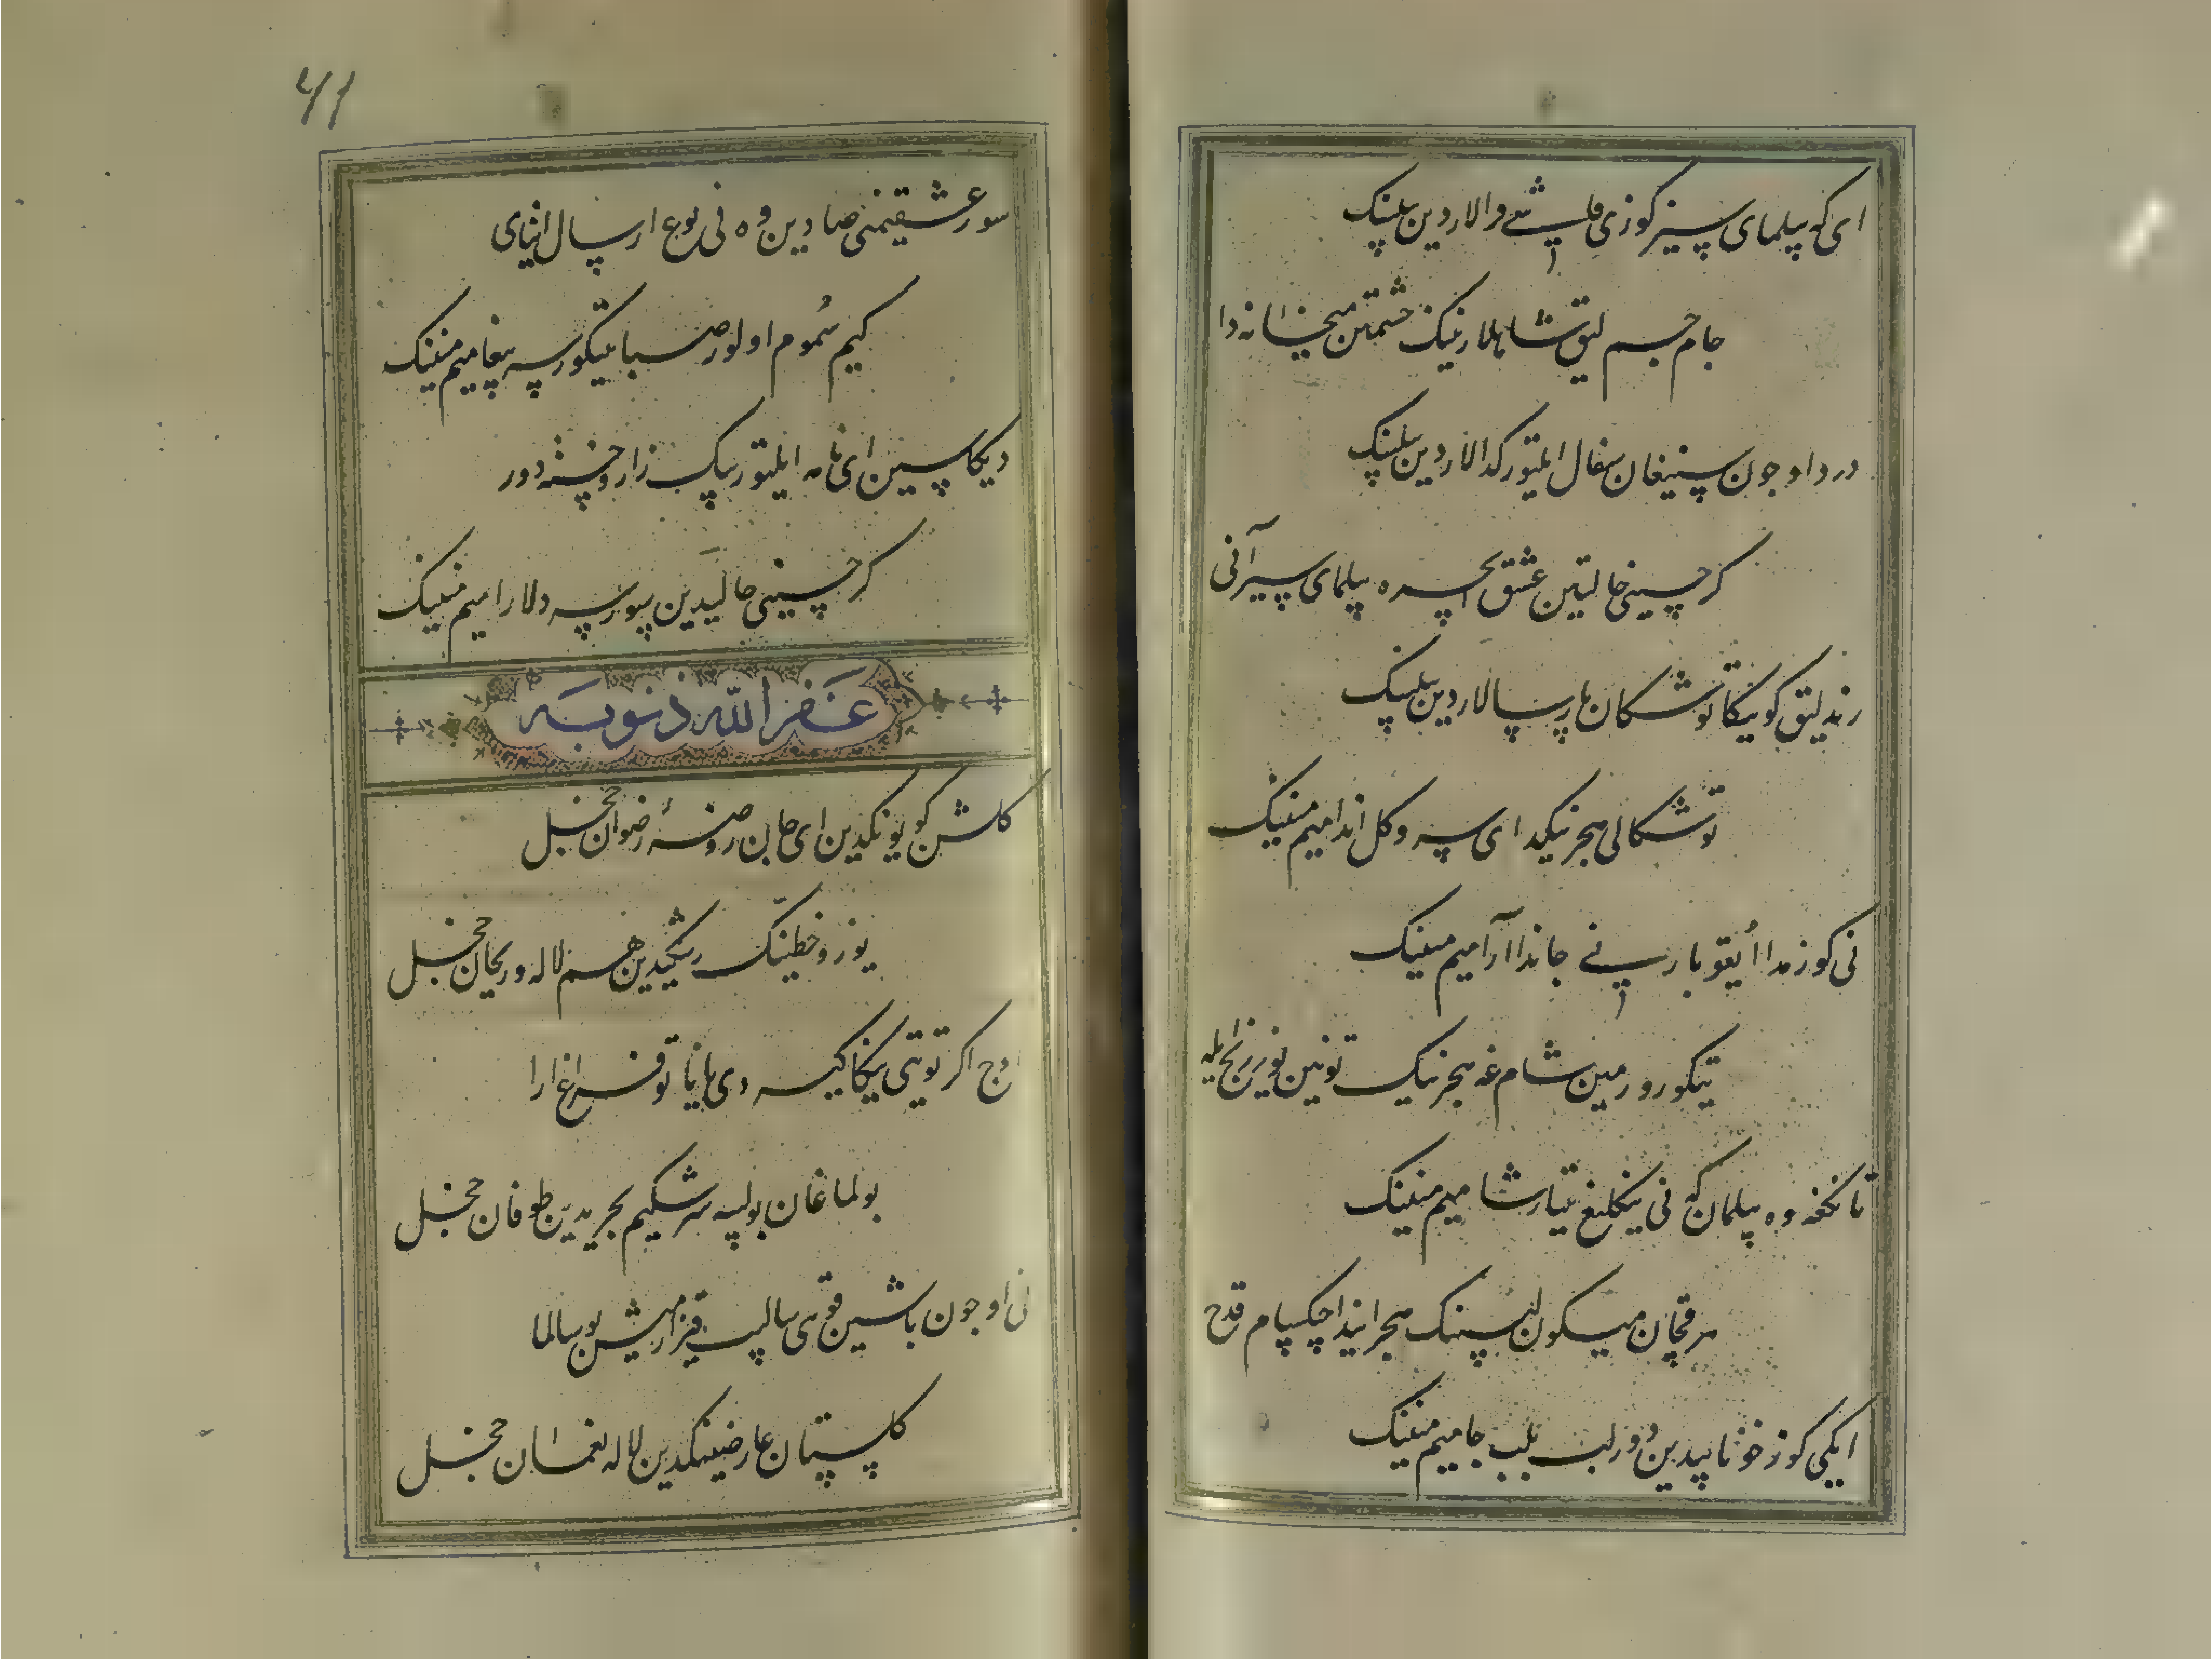 ای که بیلمای سیز کوزی قاشی قرالاردین بیلینک
جام جم لیق شاهلارنینک حشمتین میخانه دا
درد اوجون سینغان سفال ایلتور کدالاردین بیلینک
کر حسینی حالتین عشق ایچره بیلمای سیز آنی
رند لیق کوییکا توشکان پارسالاردین بیلینک
توشکالی هجرینکدا ای سرو کل اندامیم مینینک
نی کوزمدا اویقو بار نی جاندا آرامیم مینینک
تیکورورمین شام غه هجرینک تونین یوز رنج ایله
تانکغه وه بیلمان که نی ینکلیغ یتار شامیم مینینک
هر قچان میکون لبینک هجرانیدا چکسام قدح
ایکی کوز خونابیدین دور لب بلب جامیم مینینک
سور عشقیمنی صبادین وه نی نوع ارسال ایتای
کیم سموم اولور صبا یتکورسه پیغامیم مینینک
دیکاسین ای نامه ایلتور پیک زار و خسته دور
کر حسینی حالیدین سورسه دلارامیم مینینک
غفر الله ذنوبه
کلشن کویونکدین ای جان روضهٔ رضوان خجل
یوز و خطینک رشکیدین هم لاله و ریحان خجل
اوج اکر توتی ینکا کیسه دی هانیا توفراغ ارا
بولماغان بولسه سرشکیم بحریدین طوفان خجل
نی اوجون باشین قویی سالیب قیزارمیش بو سالما
کلستان عارضینکدین لاله نعمان خجل